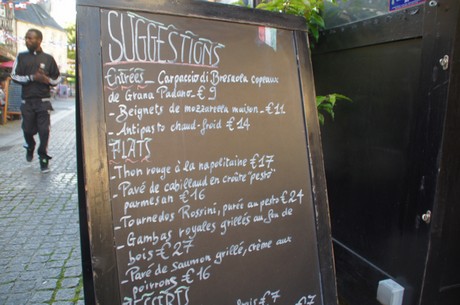 SUGGESTIONS
Entrées - Carpaccio di Bresaola copeaux
de Grana Padano €9
- Beignets de mozzarella maison - €11
- Antipasto chaud-froid €14
PLATS
- Thon rouge à la napolitaine €17
- Pavé de cabillaud en croûte "pesto"
parmesan €16
- Tournedos Rossini, purée au pesto €24
- Gambas royales grillés au feu de
bois €27
- Pavé de saumon grillé, crème aux
poivrons €16
€7 €7